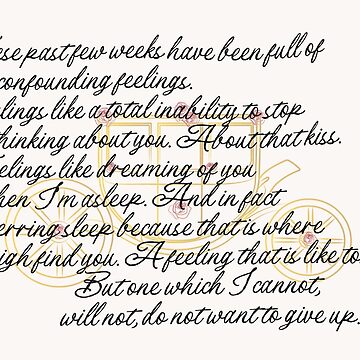 ese past few weeks have been full of
confounding feelings.
elings like a total inability to stop
thinking about you. About that kiss.
eelings like dreaming of you
hen I'm asleep. And in fact
erring sleep because that is where
igh find you. A feeling that is like to
But one which I cannot,
will not, do not want to give up.